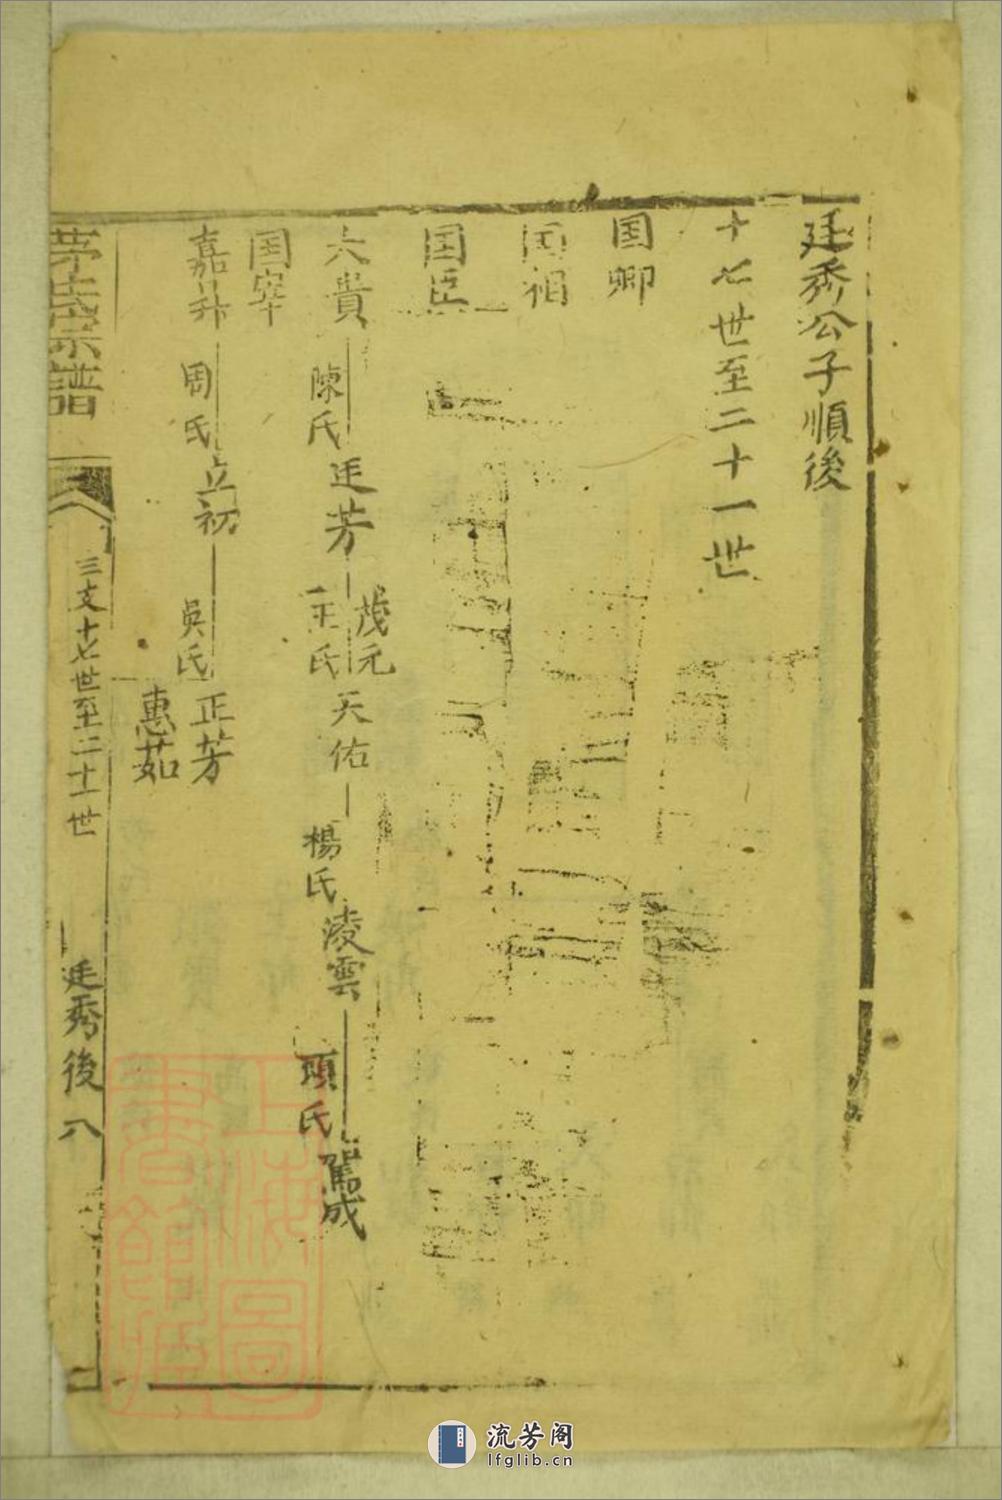 廷秀公子順後
十七世至二十一世
国卿
国相
国臣
六貴 陳氏 廷芳 茂元 王氏 天佑 楊氏 凌雲 項氏 駕成
国宰
嘉昇 周氏 立初 吳氏 正芳
惠茹
茅氏宗譜 三支十七世至二十一世 廷秀後 八
上海圖書館藏
流芳阁
lfglib.cn